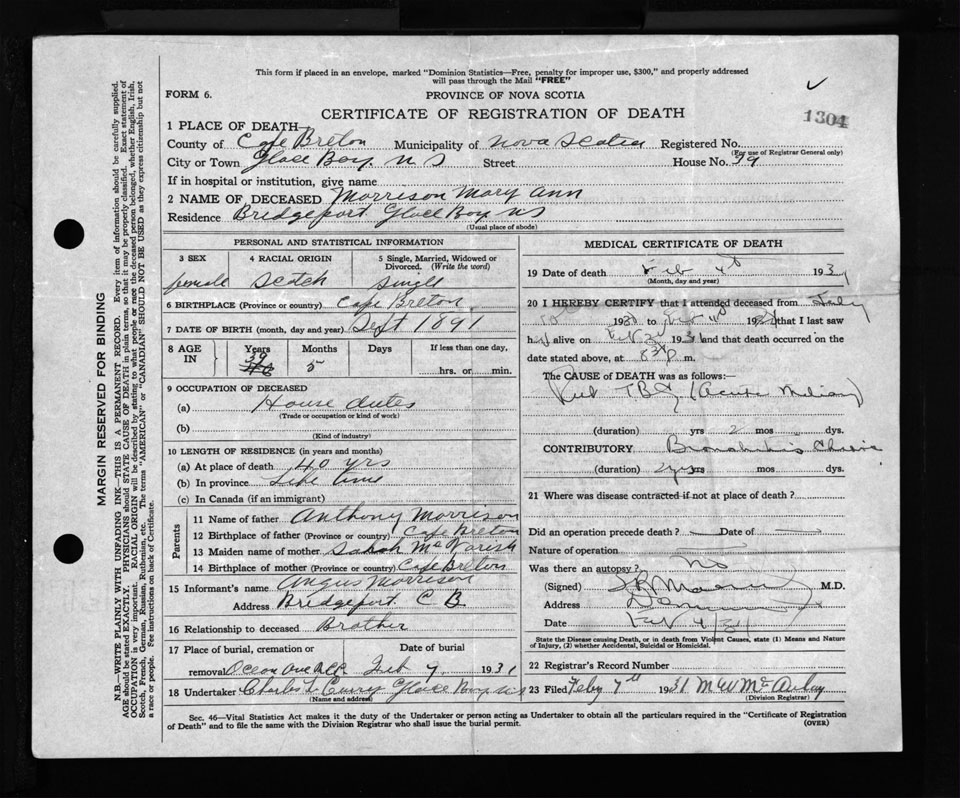 This form if placed in an envelope, marked "Dominion Statistics—Free, penalty for improper use, $300," and properly addressed
will pass through the Mail "FREE"
FORM 6.
PROVINCE OF NOVA SCOTIA
CERTIFICATE OF REGISTRATION OF DEATH
1304
1 PLACE OF DEATH—
County of Cape Breton Municipality of Nova Scotia Registered No.
(For use of Registrar General only)
City or Town Glace Bay N S Street House No. 39
If in hospital or institution, give name
2 NAME OF DECEASED Morrison Mary Ann
Residence Bridgeport Glace Bay NS
(Usual place of abode)
PERSONAL AND STATISTICAL INFORMATION
3 SEX 4 RACIAL ORIGIN 5 Single, Married, Widowed or
Divorced. (Write the word)
female Scotch Single
6 BIRTHPLACE (Province or country) Cape Breton
7 DATE OF BIRTH (month, day and year) Sept 1891
8 AGE IN Years Months Days If less than one day,
39 5 hrs. or min.
9 OCCUPATION OF DECEASED
(a) House duties
(Trade or occupation or kind of work)
(b)
(Kind of industry)
10 LENGTH OF RESIDENCE (in years and months)
(a) At place of death 40 yrs
(b) In province Life time
(c) In Canada (if an immigrant)
Parents
11 Name of father Anthony Morrison
12 Birthplace of father (Province or country) Cape Breton
13 Maiden name of mother Sarah
14 Birthplace of mother (Province or country) Cape Breton
15 Informant's name Angus Morrison
Address Bridgeport C B
16 Relationship to deceased Brother
17 Place of burial, cremation or Date of burial
removal Feb 7 1931
18 Undertaker Charles L Curry Glace Bay NS
(Name and address)
MEDICAL CERTIFICATE OF DEATH
19 Date of death Feb 4th 1931
(Month, day and year)
20 I HEREBY CERTIFY that I attended deceased from July
1930 to Feb 4th 1931 that I last saw
h alive on Feb 1931 and that death occurred on the
date stated above, at m.
The CAUSE of DEATH was as follows:—
(duration) yrs 2 mos dys.
CONTRIBUTORY Bronchitis Chronic
(duration) 2 yrs mos. dys.
21 Where was disease contracted if not at place of death?
Did an operation precede death? Date of
Nature of operation
Was there an autopsy? No
(Signed) M.D.
Address
Date Feb 4/31
State the Disease causing Death, or in death from Violent Causes, state (1) Means and Nature
of Injury, (2) whether Accidental, Suicidal or Homicidal.
22 Registrar's Record Number
23 Filed Feby 7th 1931
(Division Registrar)
Sec. 46—Vital Statistics Act makes it the duty of the Undertaker or person acting as Undertaker to obtain all the particulars required in the "Certificate of Registration
of Death" and to file the same with the Division Registrar who shall issue the burial permit.
(OVER)
MARGIN RESERVED FOR BINDING
N.B.—WRITE PLAINLY WITH UNFADING INK—THIS IS A PERMANENT RECORD. Every item of information should be carefully supplied.
AGE should be stated EXACTLY. PHYSICIANS should STATE CAUSE OF DEATH in plain terms, so that it may be properly classified. Exact statement of
OCCUPATION is very important. RACIAL ORIGIN will be described by stating to what people or race the deceased person belonged, whether English, Irish,
Scotch, French, German, Russian, Ruthenian, etc. The terms "AMERICAN" or "CANADIAN" SHOULD NOT BE USED as they express citizenship but not
a race or people. See instructions on back of Certificate.